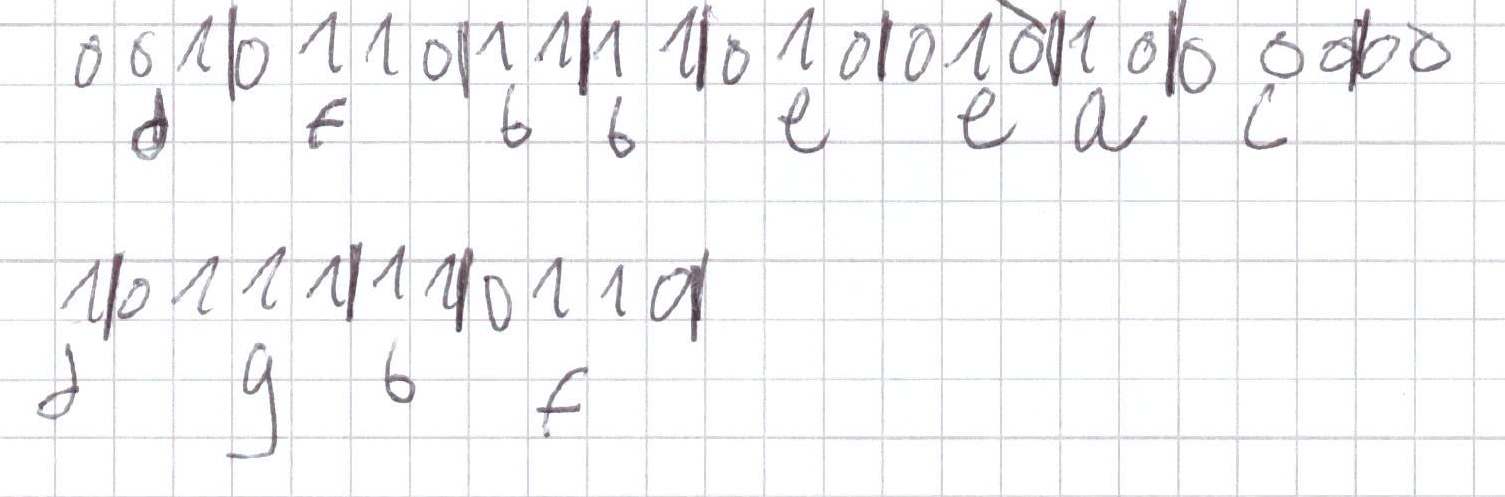 001|0110|11|11|010|010|10|000|00
d f b b e e a c
1|0111|11|0110|
d g b f